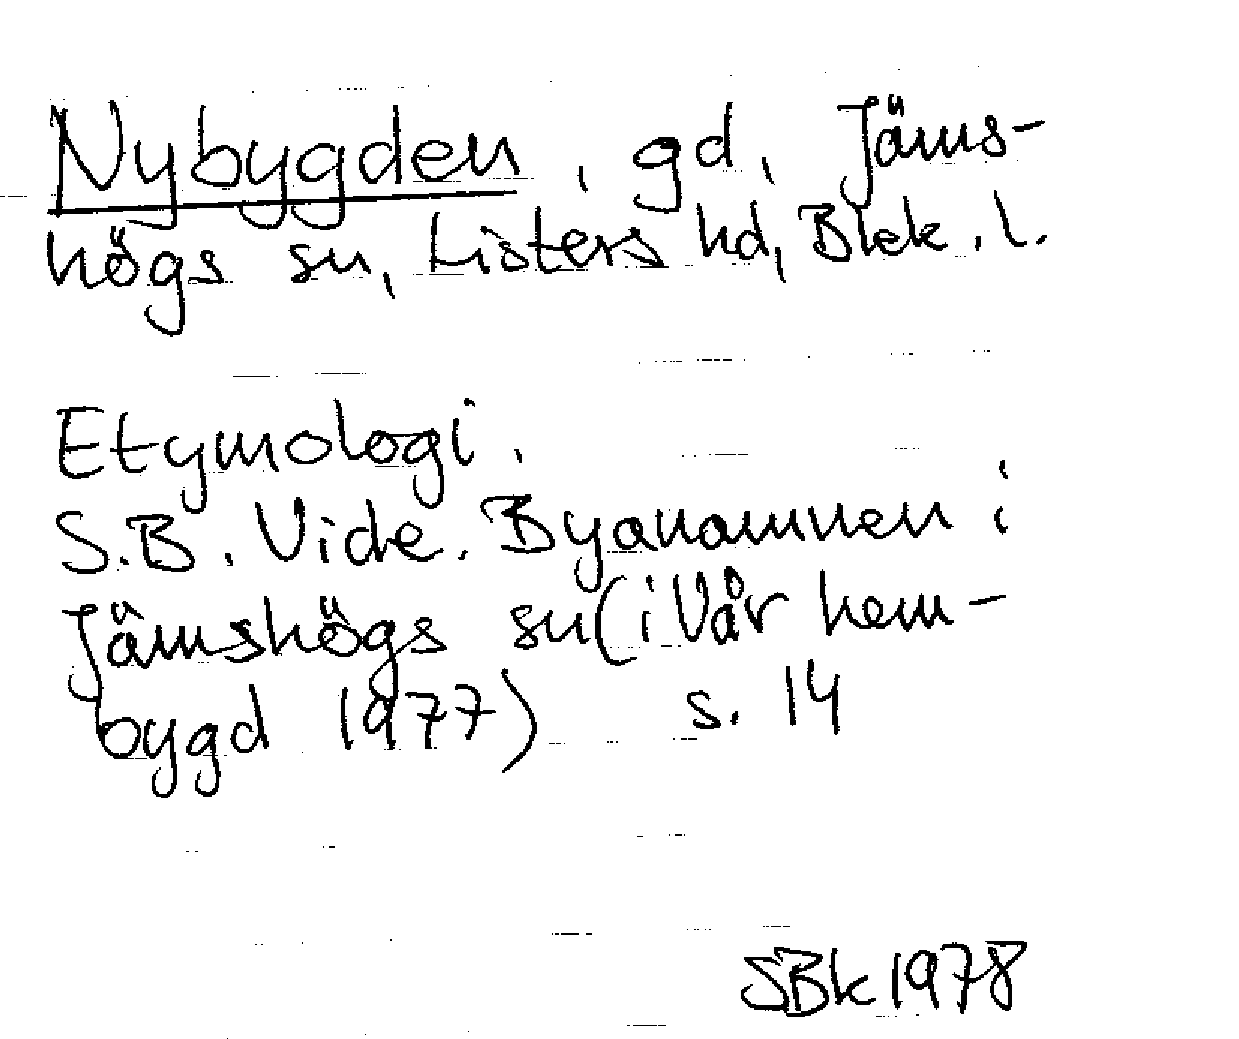 Nybygden, gd, Jäms-
högs sn, Listers hd, Blek. l.
Etymologi.
S.B. Vide. Byanamnen i
Jämshögs sn (i Vår hem-
bygd 1977) s. 14
SBk 1978